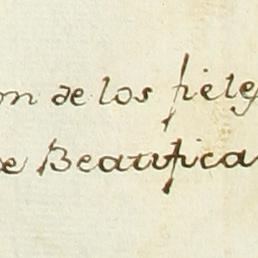 on de los fieles
de Beatifica